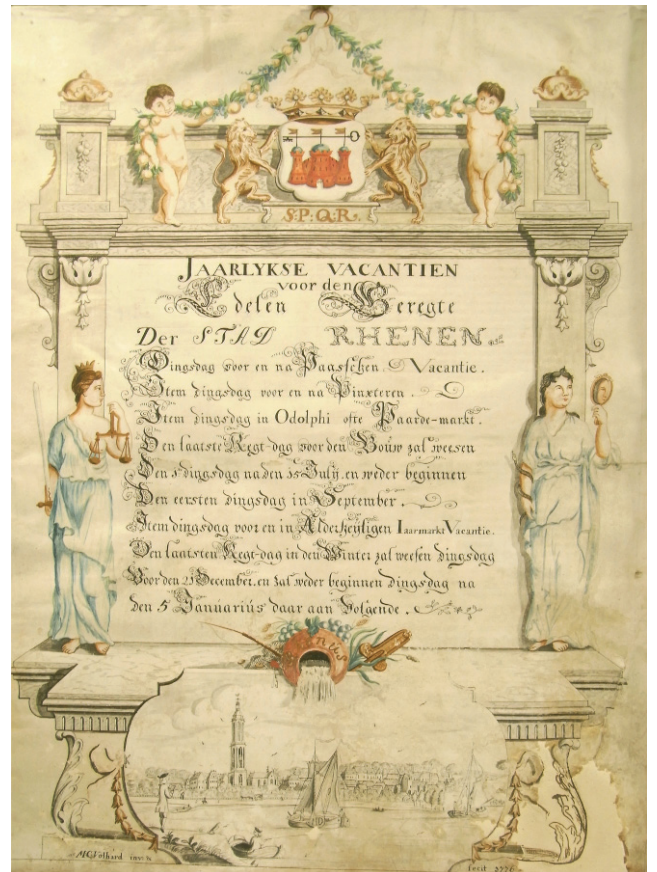 S.P.Q.R.
JAARLYKSE VACANTIEN
voor den
Edelen Geregte
Der STAD RHENEN.
Dingsdag voor en na Paasschen. Vacantie.
Item dingsdag voor en na Pinxteren.
Item dingsdag in Odolphi ofte Paarde-markt.
Den laatste Regt-dag voor den Bouw zal weesen
Den 1 dingsdag na den 15 July. en weder beginnen
Den eersten dingsdag in September.
Item dingsdag voor en in Alderheyligen Iaarmarkt Vacantie.
Den laatsten Regt-dag in den Winter zal weesen dingsdag
Voor den 21 December. en zal weder beginnen dingsdag na
den 5 Januariús daar aan volgende.
fecit 1776